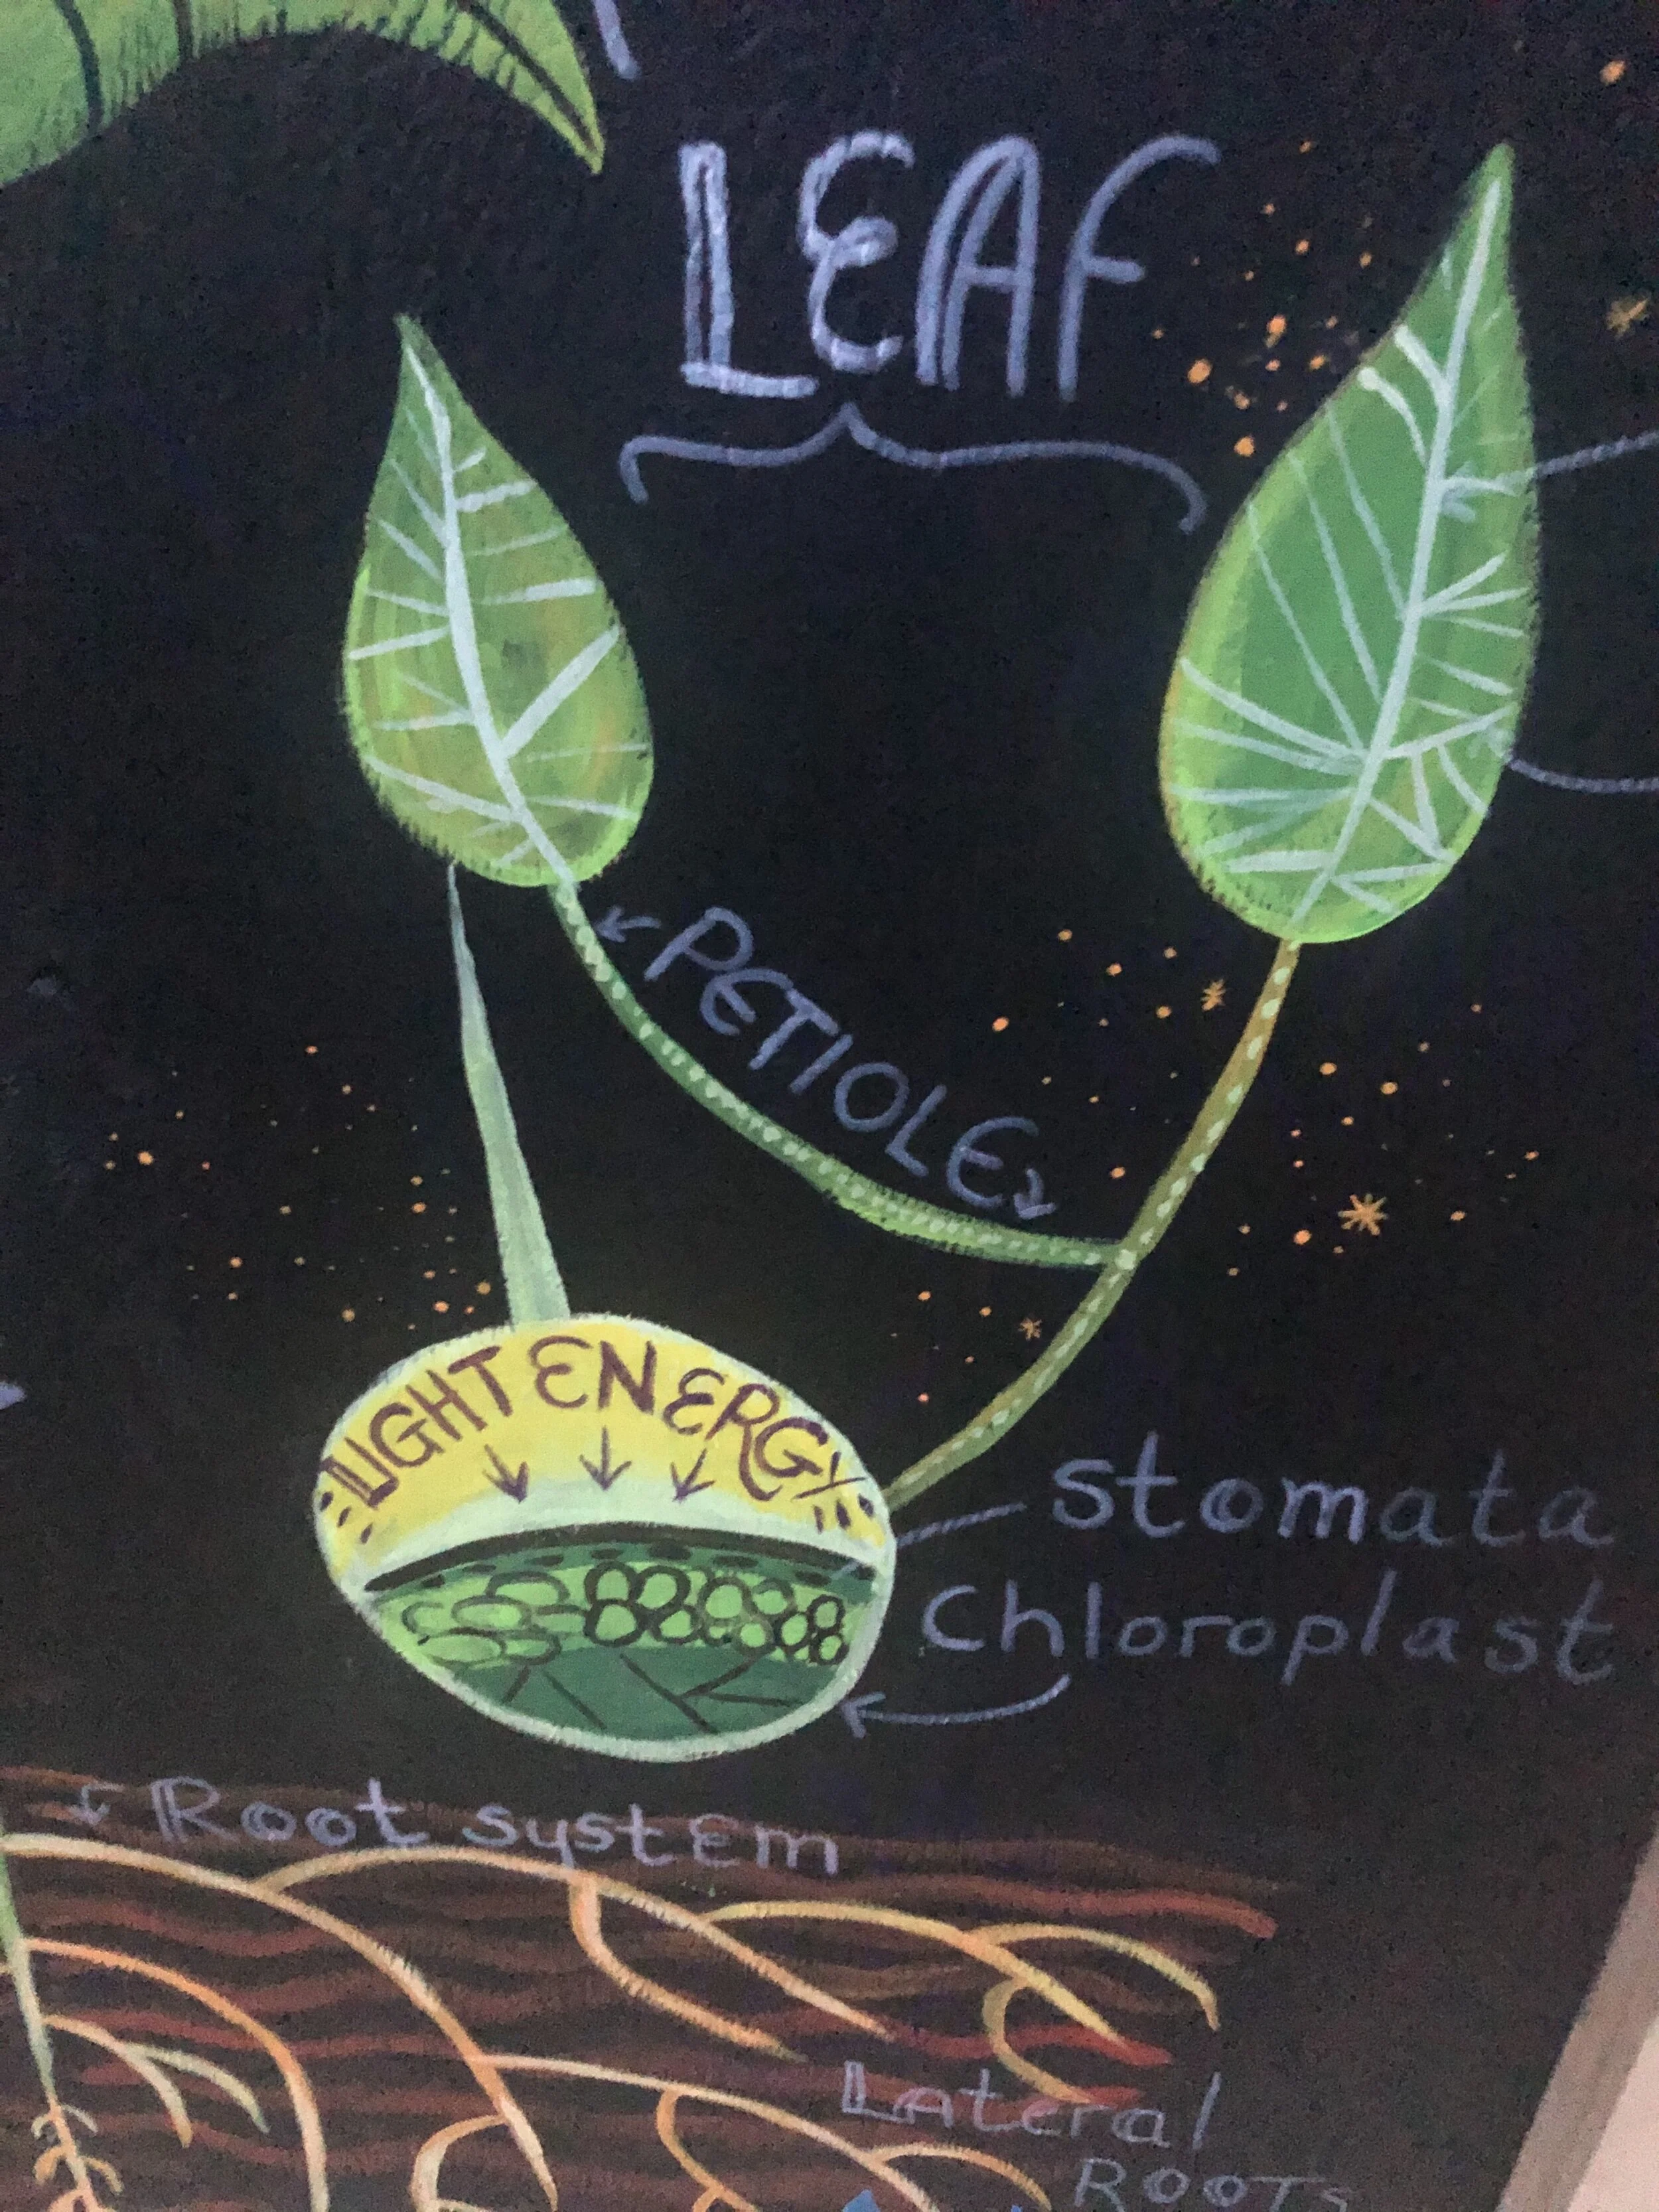 LEAF
PETIOLE
LIGHT ENERGY
stomata
Chloroplast
Root systEm
Lateral
ROOTS